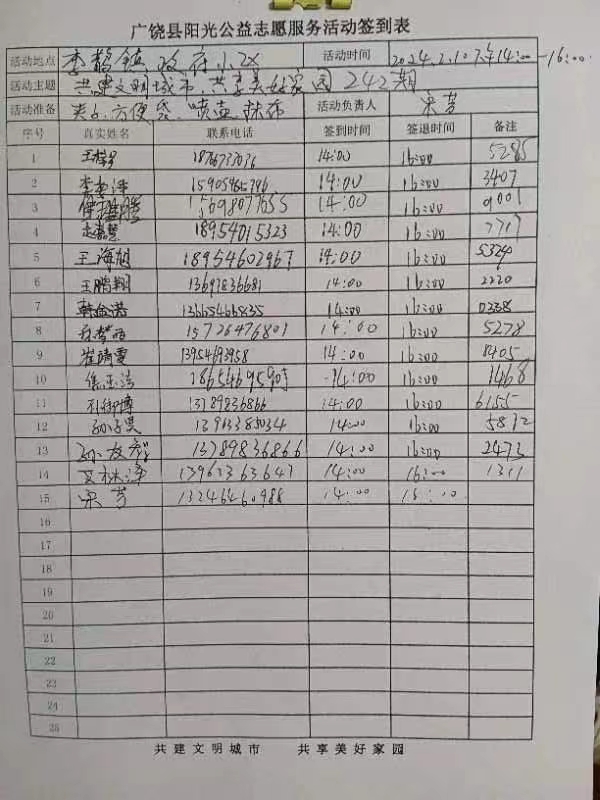 广饶县阳光公益志愿服务活动签到表
活动地点 李鹊镇政府小区 活动时间 2024.2.10下午14:00-16:00
活动主题 共建文明城市、共享美好家园242期
活动准备 方便袋、喷壶、抹布 活动负责人 宋芳
序号 真实姓名 联系电话 签到时间 签退时间 备注
1 14:00 16:00 5285
2 14:00 16:00 3407
3 14:00 16:00 9001
4 18954015323 14:00 16:00
5 王海旭 18954602967 14:00 16:00 5324
6 王鹏翔 13697836681 14:00 16:00 2220
7 13665466835 14:00 16:00 0338
8 15726476801 14:00 16:00 5278
9 崔晴雯 13954693958 14:00 16:00 8405
10 14:00 16:00 1468
11 13789836866 14:00 16:00 6155
12 14:00 16:00 5812
13 13789836866 14:00 16:00 2473
14 14:00 16:00 1311
15 宋芳 13246460988 14:00 16:00
16
17
18
19
20
21
22
23
24
25
共建文明城市 共享美好家园